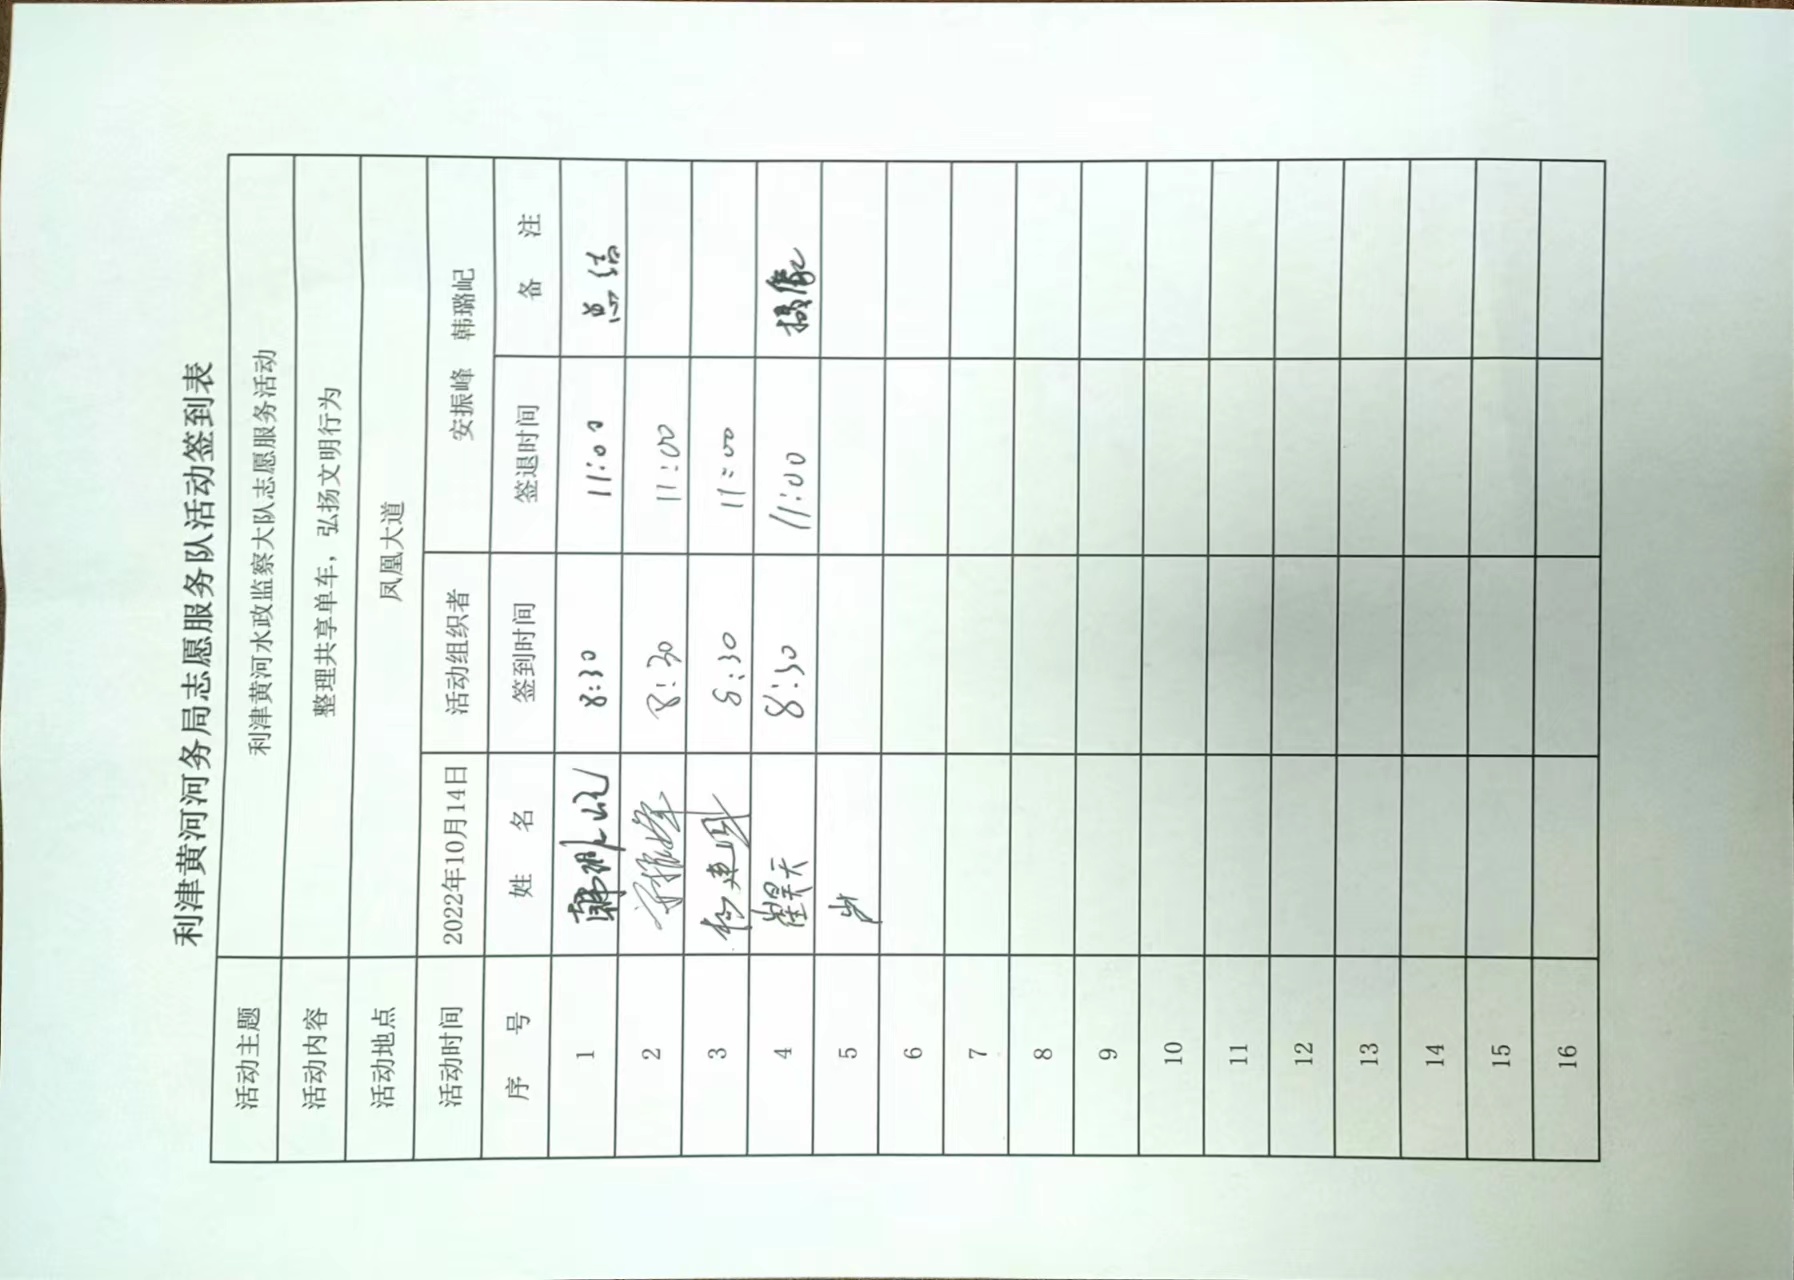 利津黄河河务局志愿服务队活动签到表
活动主题 利津黄河水政监察大队志愿服务活动
活动内容 整理共享单车，弘扬文明行为
活动地点 凤凰大道
活动时间 2022年10月14日 活动组织者 安振峰 韩璐屺
序 号 姓 名 签到时间 签退时间 备 注
1 韩璐屺 8:30 11:00 总结
2 安振峰 8:30 11:00
3 8:30 11:00
4 崔昊天 8:30 11:00 摄像
5
6
7
8
9
10
11
12
13
14
15
16